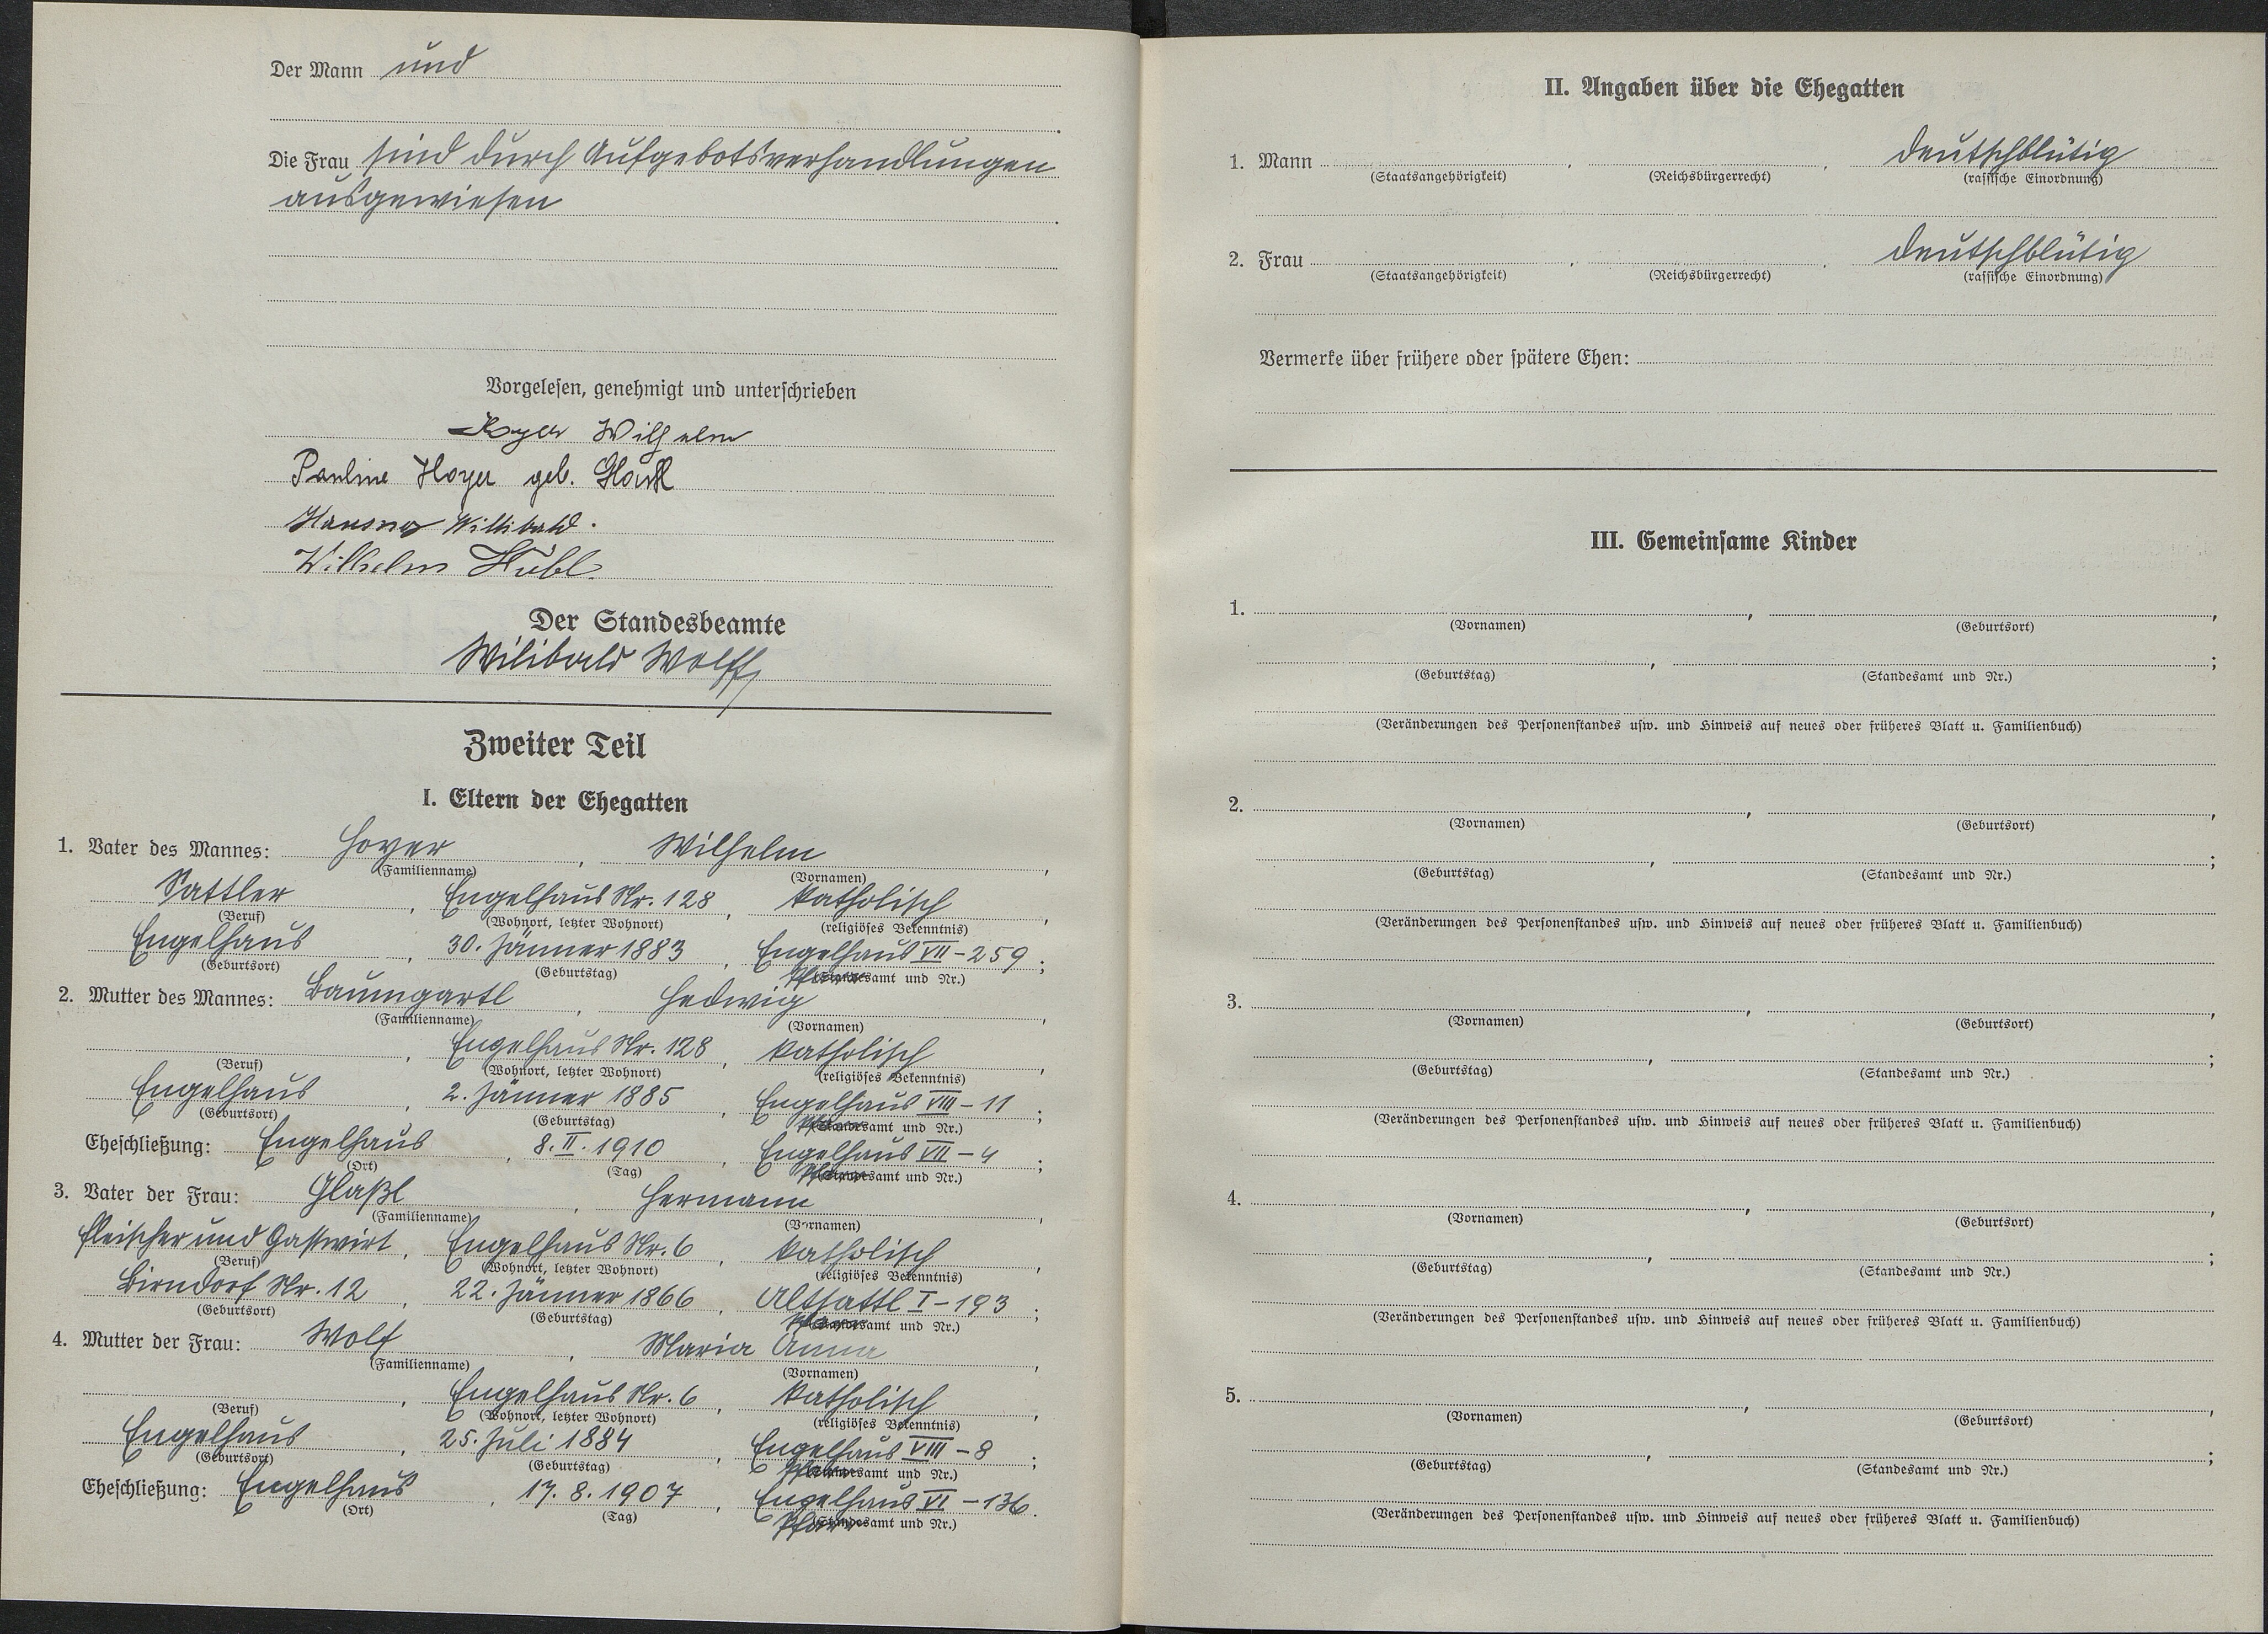 Der Mann und
Die Frau sind durch Aufgebotsverhandlungen
ausgewiesen
Vorgelesen, genehmigt und unterschrieben
Hoyer Wilhelm
Pauline Hoyer geb. Glaßl
Willibald.
Wilhelm Hübl
Der Standesbeamte
Wilibald Wolff
Zweiter Teil
I. Eltern der Ehegatten
1. Vater des Mannes: Hoyer, Wilhelm,
(Familienname) (Vornamen)
Sattler, Engelhaus Nr. 128, katholisch,
(Beruf) (Wohnort, letzter Wohnort) (religiöses Bekenntnis)
Engelhaus, 30. Jänner 1883, Engelhaus VII-259;
(Geburtsort) (Geburtstag) Pfarramt und Nr.)
2. Mutter des Mannes: Baumgartl, Hedwig,
(Familienname) (Vornamen)
, Engelhaus Nr. 128, katholisch,
(Beruf) (Wohnort, letzter Wohnort) (religiöses Bekenntnis)
Engelhaus, 2. Jänner 1885, Engelhaus VIII-11;
(Geburtsort) (Geburtstag) Pfarramt und Nr.)
Eheschließung: Engelhaus, 8. II. 1910, Engelhaus VII-4;
(Ort) (Tag) Pfarramt und Nr.)
3. Vater der Frau: Glaßl, Hermann,
(Familienname) (Vornamen)
Fleischer und Gastwirt, Engelhaus Nr. 6, katholisch,
(Beruf) (Wohnort, letzter Wohnort) (religiöses Bekenntnis)
Birndorf Nr. 12, 22. Jänner 1866, Altsattl I-193;
(Geburtsort) (Geburtstag) Pfarramt und Nr.)
4. Mutter der Frau: Wolf, Maria Anna,
(Familienname) (Vornamen)
, Engelhaus Nr. 6, katholisch,
(Beruf) (Wohnort, letzter Wohnort) (religiöses Bekenntnis)
Engelhaus, 25. Juli 1884, Engelhaus VIII-8;
(Geburtsort) (Geburtstag) Pfarramt und Nr.)
Eheschließung: Engelhaus, 17. 8. 1907, Engelhaus VI-136.
(Ort) (Tag) Pfarramt und Nr.)
II. Angaben über die Ehegatten
1. Mann , , deutschblütig
(Staatsangehörigkeit) (Reichsbürgerrecht) (rassische Einordnung)
2. Frau , , deutschblütig
(Staatsangehörigkeit) (Reichsbürgerrecht) (rassische Einordnung)
Vermerke über frühere oder spätere Ehen:
III. Gemeinsame Kinder
1. , ,
(Vornamen) (Geburtsort)
, ;
(Geburtstag) (Standesamt und Nr.)
(Veränderungen des Personenstandes usw. und Hinweis auf neues oder früheres Blatt u. Familienbuch)
2. , ,
(Vornamen) (Geburtsort)
, ;
(Geburtstag) (Standesamt und Nr.)
(Veränderungen des Personenstandes usw. und Hinweis auf neues oder früheres Blatt u. Familienbuch)
3. , ,
(Vornamen) (Geburtsort)
, ;
(Geburtstag) (Standesamt und Nr.)
(Veränderungen des Personenstandes usw. und Hinweis auf neues oder früheres Blatt u. Familienbuch)
4. , ,
(Vornamen) (Geburtsort)
, ;
(Geburtstag) (Standesamt und Nr.)
(Veränderungen des Personenstandes usw. und Hinweis auf neues oder früheres Blatt u. Familienbuch)
5. , ,
(Vornamen) (Geburtsort)
, ;
(Geburtstag) (Standesamt und Nr.)
(Veränderungen des Personenstandes usw. und Hinweis auf neues oder früheres Blatt u. Familienbuch)